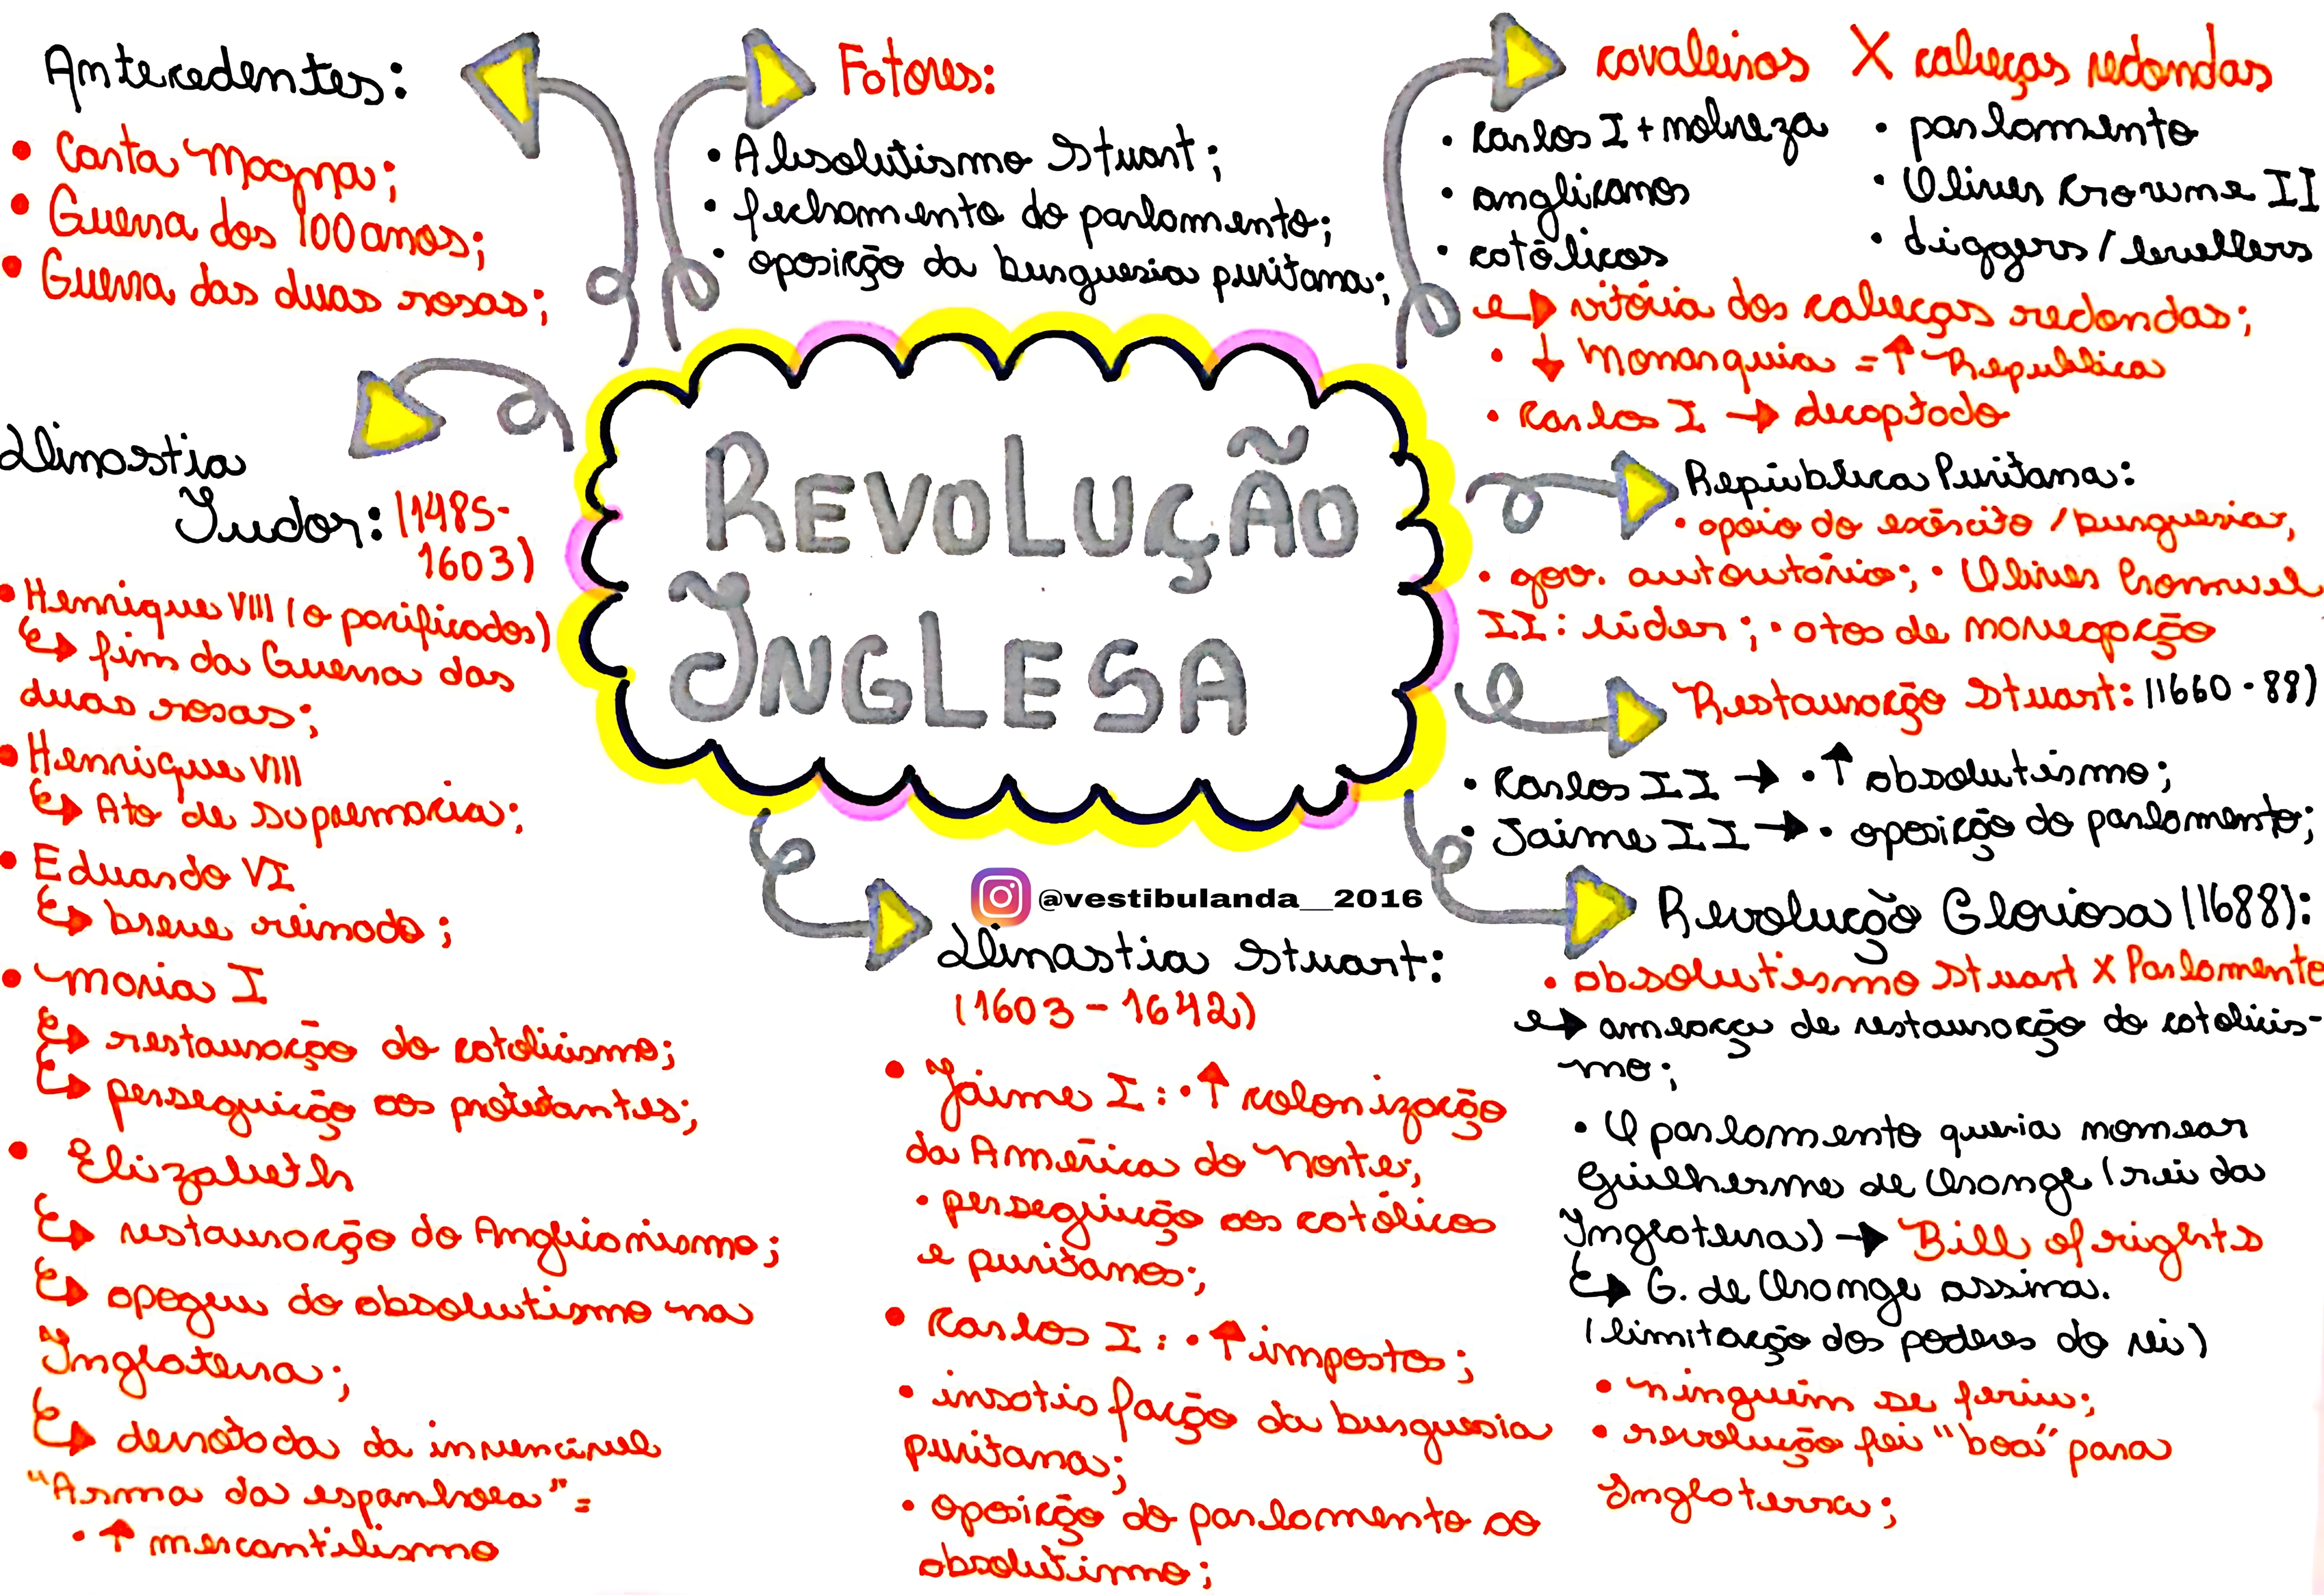 Antecedentes:
• Carta Magna;
• Guerra dos 100 anos;
• Guerra das duas rosas;
Fatores:
• Absolutismo Stuart;
• fechamento do parlamento;
• oposição da burguesia puritana;
cavaleiros X cabeças redondas
• Carlos I + nobreza
• anglicanos
• católicos
• parlamento
• Oliver Crowme II
• diggers / levellers
→ vitória dos cabeças redondas;
• ↓ Monarquia = ↑ Republica
• Carlos I → decaptado
Dinastia
Tudor: (1485-
1603)
• Henrique VIII (o pacificador)
↳ fim da Guerra das
duas rosas;
• Henrique VIII
↳ Ato de supremacia;
• Eduardo VI
↳ breve reinado;
• Maria I
↳ restauração do catolicismo;
↳ perseguição aos protestantes;
• Elizabeth
↳ restauração do Anglicanismo;
↳ apogeu do absolutismo na
Inglaterra;
↳ derrotada da invencível
"Arma da espanhola" =
• ↑ mercantilismo
REVOLUÇÃO
INGLESA
@vestibulanda__2016
Dinastia Stuart:
(1603 - 1642)
• Jaime I: • ↑ colonização
da América do Norte;
• perseguição aos católicos
e puritanos;
• Carlos I: • ↑ impostos;
• insatisfação da burguesia
puritana;
• oposição do parlamento ao
absolutismo;
República Puritana:
• apoio do exército / burguesia,
• gov. autoritário; • Oliver Cromwel
II: líder; • atos de navegação
Restauração Stuart: (1660 - 88)
• Carlos II → • ↑ absolutismo;
• Jaime II → • oposição do parlamento;
Revolução Gloriosa (1688):
• absolutismo Stuart X Parlamento
→ ameaça de restauração do catolicis-
mo;
• O parlamento queria nomear
Guilherme de Orange (rei da
Inglaterra) → Bill of rights
↳ G. de Orange assina.
(limitação dos poderes do rei)
• ninguém se feriu;
• revolução foi "boa" para
Inglaterra;